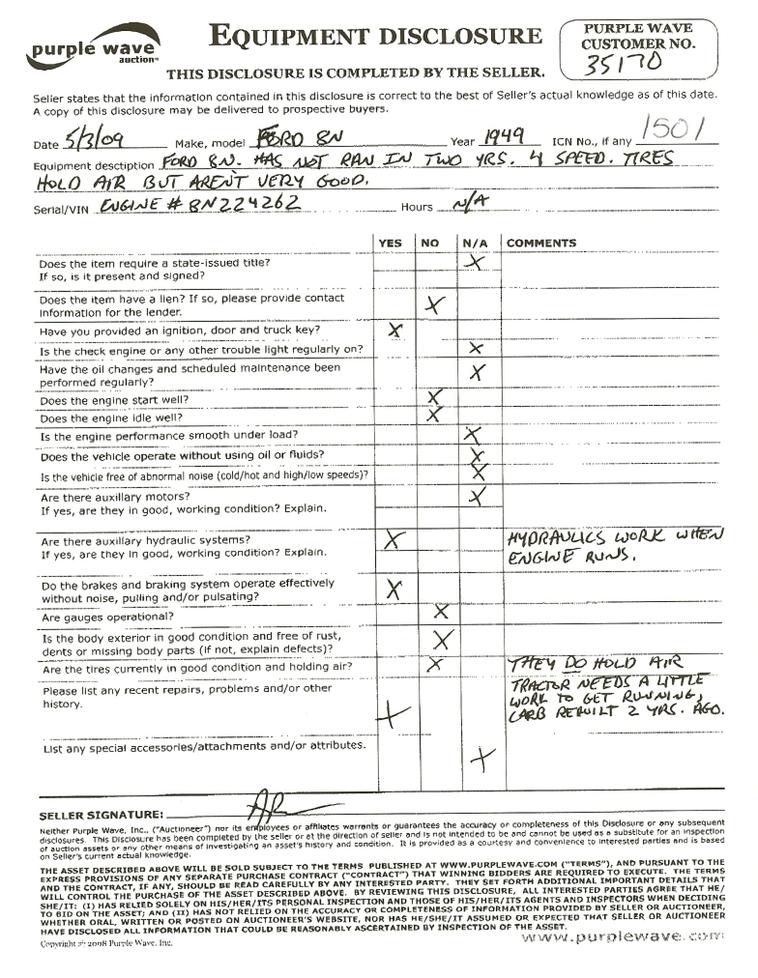 purple wave
auction™
EQUIPMENT DISCLOSURE
THIS DISCLOSURE IS COMPLETED BY THE SELLER.
PURPLE WAVE
CUSTOMER NO.
35170
Seller states that the information contained in this disclosure is correct to the best of Seller's actual knowledge as of this date.
A copy of this disclosure may be delivered to prospective buyers.
Date 5/3/09 Make, model FORD 8N Year 1949 ICN No., if any 1501
Equipment desctiption FORD 8N. HAS NOT RAN IN TWO YRS. 4 SPEED. TIRES
HOLD AIR BUT AREN'T VERY GOOD.
Serial/VIN ENGINE # 8N224262 Hours N/A
YES NO N/A COMMENTS
Does the item require a state-issued title? X
If so, is it present and signed?
Does the item have a lien? If so, please provide contact X
information for the lender.
Have you provided an ignition, door and truck key? X
Is the check engine or any other trouble light regularly on? X
Have the oil changes and scheduled maintenance been X
performed regularly?
Does the engine start well? X
Does the engine idle well? X
Is the engine performance smooth under load? X
Does the vehicle operate without using oil or fluids? X
Is the vehicle free of abnormal noise (cold/hot and high/low speeds)? X
Are there auxillary motors? X
If yes, are they in good, working condition? Explain.
Are there auxillary hydraulic systems? X HYDRAULICS WORK WHEN
If yes, are they in good, working condition? Explain. ENGINE RUNS.
Do the brakes and braking system operate effectively X
without noise, pulling and/or pulsating?
Are gauges operational? X
Is the body exterior in good condition and free of rust, X
dents or missing body parts (if not, explain defects)?
Are the tires currently in good condition and holding air? X THEY DO HOLD AIR
Please list any recent repairs, problems and/or other TRACTOR NEEDS A LITTLE
history. X WORK TO GET RUNNING,
CARB REBUILT 2 YRS. AGO.
List any special accessories/attachments and/or attributes. X
SELLER SIGNATURE:
Neither Purple Wave, Inc., ("Auctioneer") nor its employees or affiliates warrants or guarantees the accuracy or completeness of this Disclosure or any subsequent
disclosures. This Disclosure has been completed by the seller or at the direction of seller and is not intended to be and cannot be used as a substitute for an inspection
of auction assets or any other means of investigating an asset's history and condition. It is provided as a courtesy and convenience to interested parties and is based
on Seller's current actual knowledge.
THE ASSET DESCRIBED ABOVE WILL BE SOLD SUBJECT TO THE TERMS PUBLISHED AT WWW.PURPLEWAVE.COM ("TERMS"), AND PURSUANT TO THE
EXPRESS PROVISIONS OF ANY SEPARATE PURCHASE CONTRACT ("CONTRACT") THAT WINNING BIDDERS ARE REQUIRED TO EXECUTE. THE TERMS
AND THE CONTRACT, IF ANY, SHOULD BE READ CAREFULLY BY ANY INTERESTED PARTY. THEY SET FORTH ADDITIONAL IMPORTANT DETAILS THAT
WILL CONTROL THE PURCHASE OF THE ASSET DESCRIBED ABOVE. BY REVIEWING THIS DISCLOSURE, ALL INTERESTED PARTIES AGREE THAT HE/
SHE/IT: (I) HAS RELIED SOLELY ON HIS/HER/ITS PERSONAL INSPECTION AND THOSE OF HIS/HER/ITS AGENTS AND INSPECTORS WHEN DECIDING
TO BID ON THE ASSET; AND (II) HAS NOT RELIED ON THE ACCURACY OR COMPLETENESS OF INFORMATION PROVIDED BY SELLER OR AUCTIONEER,
WHETHER ORAL, WRITTEN OR POSTED ON AUCTIONEER'S WEBSITE, NOR HAS HE/SHE/IT ASSUMED OR EXPECTED THAT SELLER OR AUCTIONEER
HAVE DISCLOSED ALL INFORMATION THAT COULD BE REASONABLY ASCERTAINED BY INSPECTION OF THE ASSET.
Copyright © 2008 Purple Wave, Inc.
www.purplewave.com